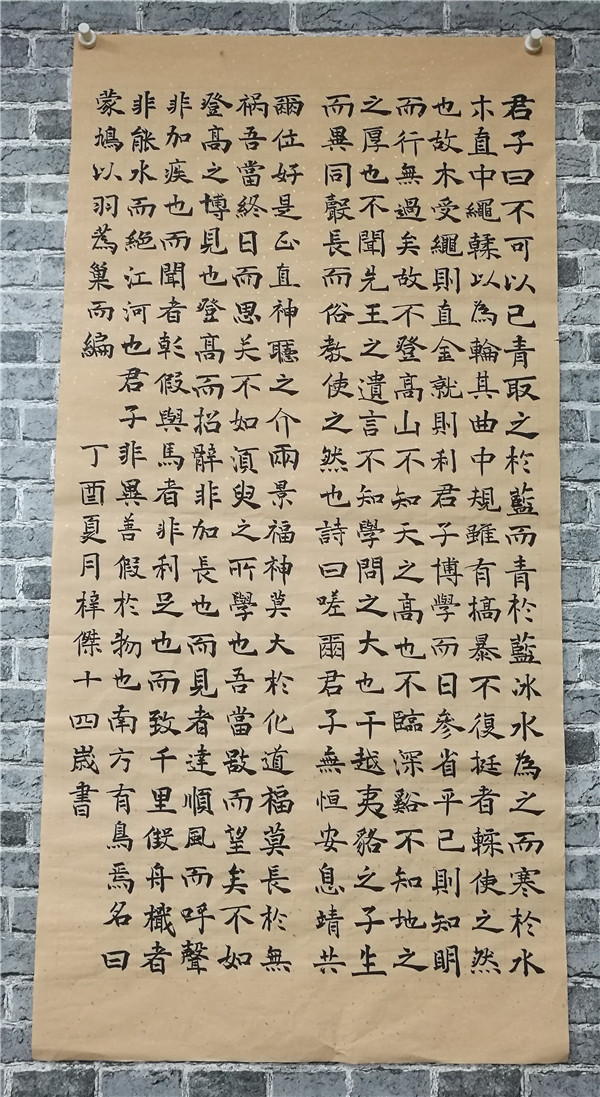 君子曰不可以已青取之於藍而青於藍冰水為之而寒於水
木直中繩輮以為輪其曲中規雖有槁暴不復挺者輮使之然
也故木受繩則直金就則利君子博學而日參省乎己則知明
而行無過矣故不登高山不知天之高也不臨深谿不知地之
之厚也不聞先王之遺言不知學問之大也干越夷貉之子生
而異同聲長而俗教使之然也詩曰嗟爾君子無恒安息靖共
爾位好是正直神聽之介兩景福神莫大於化道福莫長於無
祸吾當終日而思矣不如須臾之所學也吾當而望矣不如
登高之博見也登高而招辭非加長也而見者達順風而呼聲
非加疾也而聞者彰假與馬者非利足也而致千里假舟檝者
非能水而絕江河也君子非異善假於物也南方有鳥焉名曰
蒙鳩以羽為巢而編
丁酉夏月梓傑十四歲書